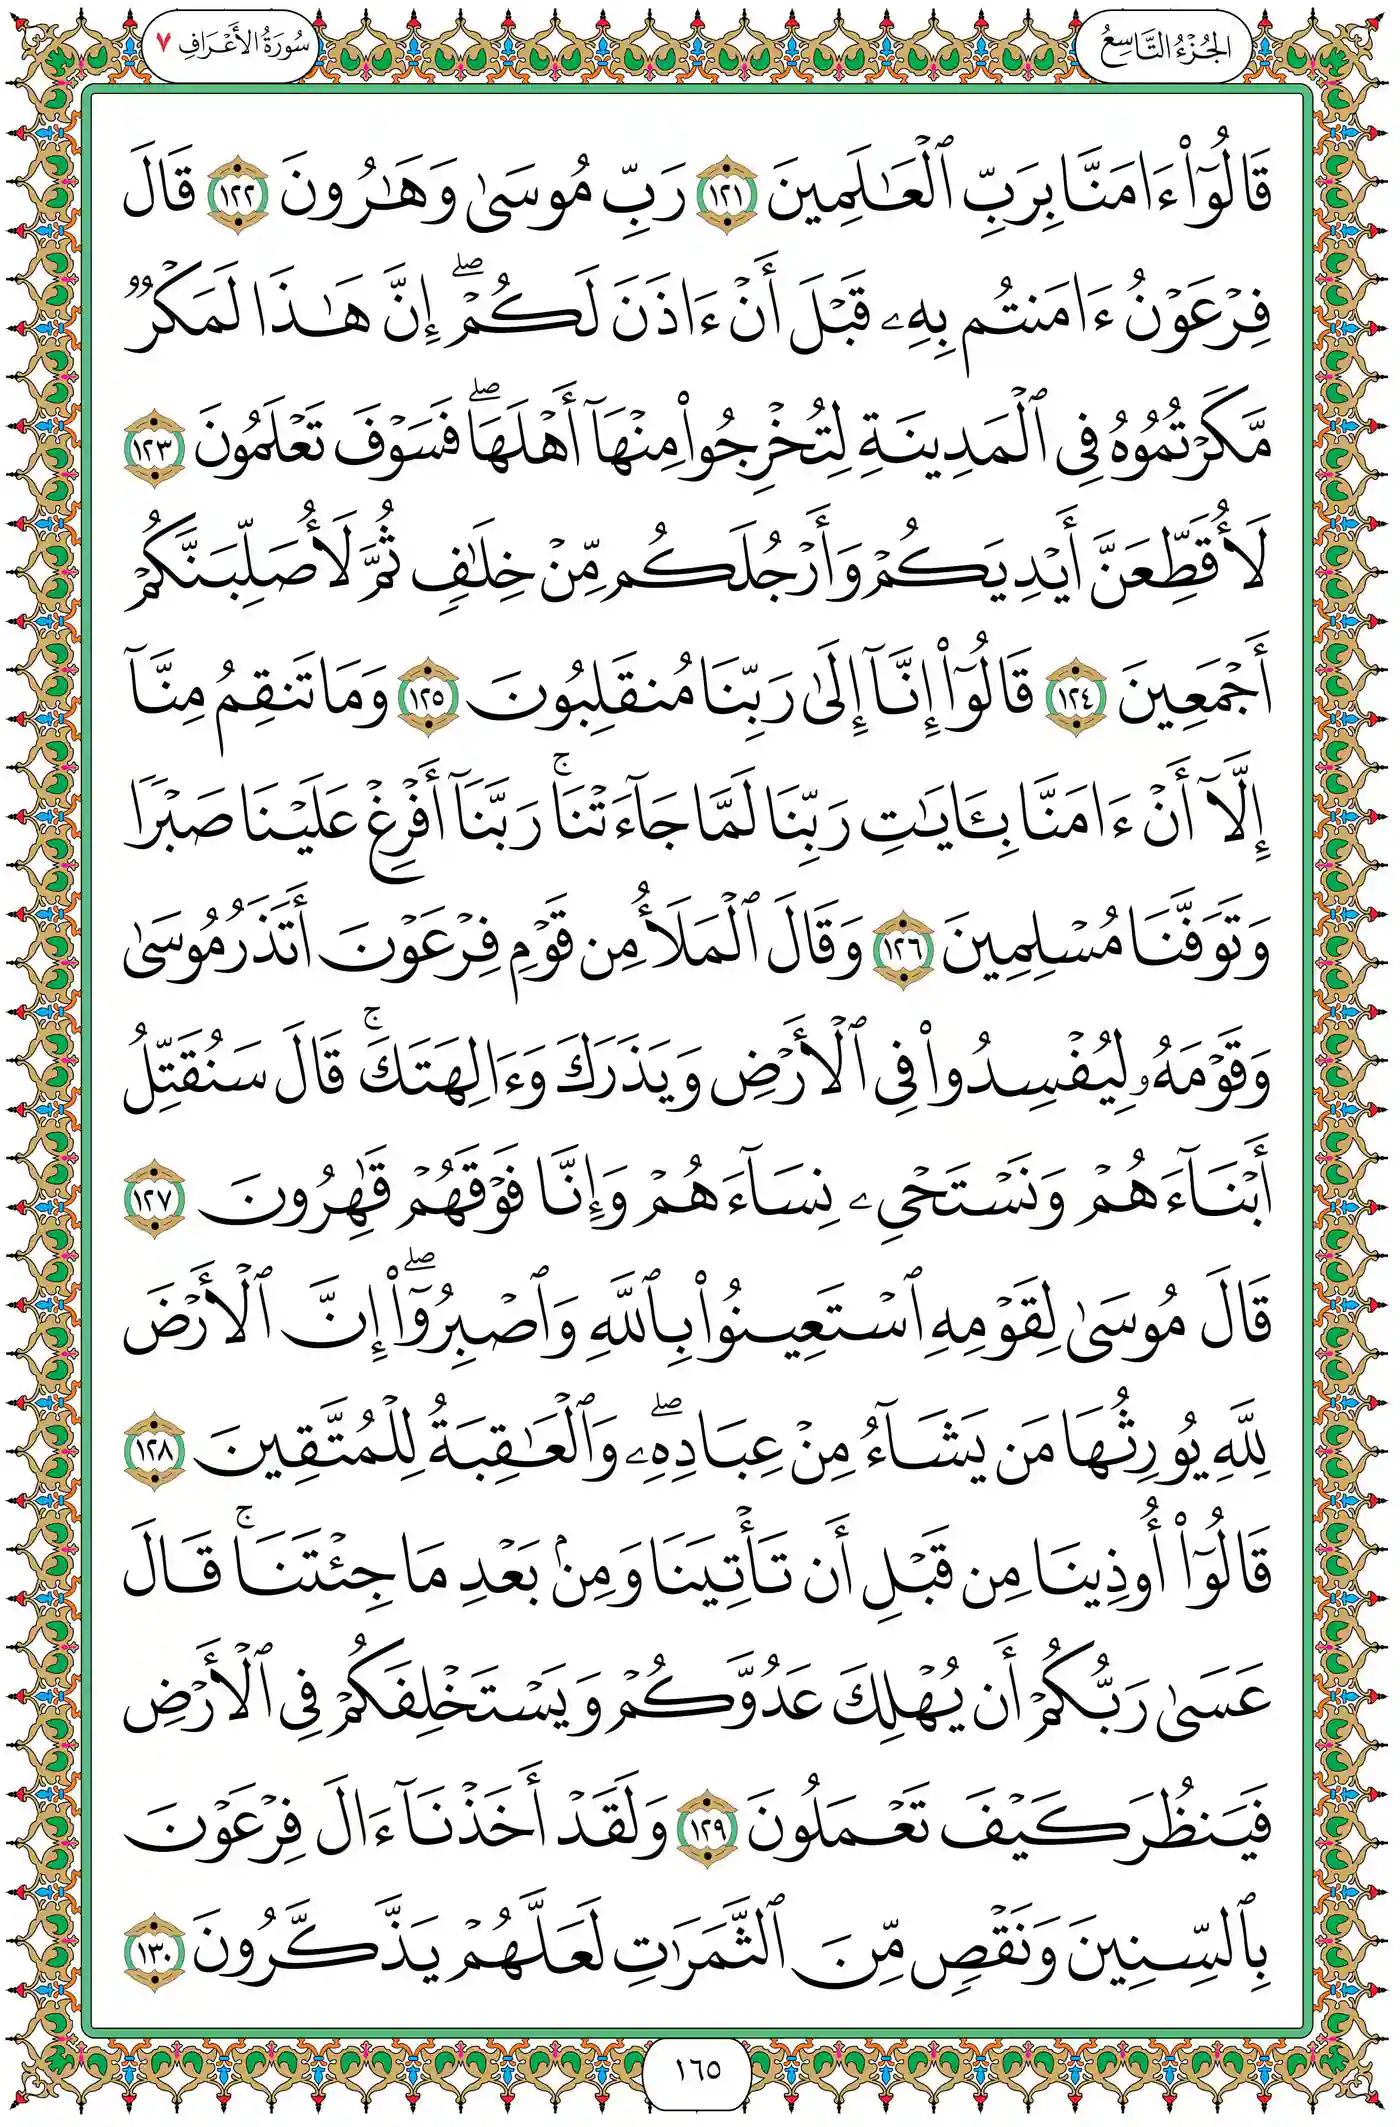 الجُزْءُ التَّاسِعُ
سُورَةُ الأَعْرَافِ ٧
قَالُوٓا۟ ءَامَنَّا بِرَبِّ ٱلْعَـٰلَمِينَ ١٢١ رَبِّ مُوسَىٰ وَهَـٰرُونَ ١٢٢ قَالَ
فِرْعَوْنُ ءَامَنتُم بِهِۦ قَبْلَ أَنْ ءَاذَنَ لَكُمْ ۖ إِنَّ هَـٰذَا لَمَكْرٌ
مَّكَرْتُمُوهُ فِى ٱلْمَدِينَةِ لِتُخْرِجُوا۟ مِنْهَآ أَهْلَهَا ۖ فَسَوْفَ تَعْلَمُونَ ١٢٣
لَأُقَطِّعَنَّ أَيْدِيَكُمْ وَأَرْجُلَكُم مِّنْ خِلَـٰفٍ ثُمَّ لَأُصَلِّبَنَّكُمْ
أَجْمَعِينَ ١٢٤ قَالُوٓا۟ إِنَّآ إِلَىٰ رَبِّنَا مُنقَلِبُونَ ١٢٥ وَمَا تَنقِمُ مِنَّآ
إِلَّآ أَنْ ءَامَنَّا بِـَٔايَـٰتِ رَبِّنَا لَمَّا جَآءَتْنَا ۚ رَبَّنَآ أَفْرِغْ عَلَيْنَا صَبْرًا
وَتَوَفَّنَا مُسْلِمِينَ ١٢٦ وَقَالَ ٱلْمَلَأُ مِن قَوْمِ فِرْعَوْنَ أَتَذَرُ مُوسَىٰ
وَقَوْمَهُۥ لِيُفْسِدُوا۟ فِى ٱلْأَرْضِ وَيَذَرَكَ وَءَالِهَتَكَ ۚ قَالَ سَنُقَتِّلُ
أَبْنَآءَهُمْ وَنَسْتَحْىِۦ نِسَآءَهُمْ وَإِنَّا فَوْقَهُمْ قَـٰهِرُونَ ١٢٧
قَالَ مُوسَىٰ لِقَوْمِهِ ٱسْتَعِينُوا۟ بِٱللَّهِ وَٱصْبِرُوٓا۟ ۖ إِنَّ ٱلْأَرْضَ
لِلَّهِ يُورِثُهَا مَن يَشَآءُ مِنْ عِبَادِهِۦ ۖ وَٱلْعَـٰقِبَةُ لِلْمُتَّقِينَ ١٢٨
قَالُوٓا۟ أُوذِينَا مِن قَبْلِ أَن تَأْتِيَنَا وَمِنۢ بَعْدِ مَا جِئْتَنَا ۚ قَالَ
عَسَىٰ رَبُّكُمْ أَن يُهْلِكَ عَدُوَّكُمْ وَيَسْتَخْلِفَكُمْ فِى ٱلْأَرْضِ
فَيَنظُرَ كَيْفَ تَعْمَلُونَ ١٢٩ وَلَقَدْ أَخَذْنَآ ءَالَ فِرْعَوْنَ
بِٱلسِّنِينَ وَنَقْصٍ مِّنَ ٱلثَّمَرَٰتِ لَعَلَّهُمْ يَذَّكَّرُونَ ١٣٠
١٦٥